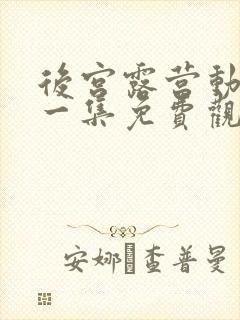 後宮露营動
一集免費觀
安娜 查普曼